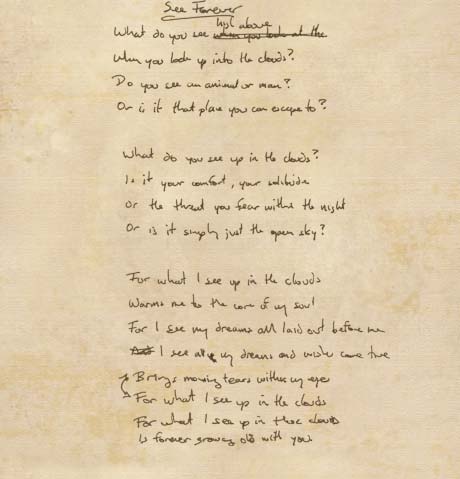 See Forever
What do you see when you look at the high above
When you look up into the clouds?
Do you see an animal or man?
Or is it that place you can escape to?
What do you see up in the clouds?
Is it your comfort, your solitude
Or the threat you fear within the night
Or is it simply just the open sky?
For what I see up in the clouds
Warms me to the core of my soul
For I see my dreams all laid out before me
And I see all my dreams and wishes come true
Brings moving tears within my eyes
For what I see up in the clouds
For what I see up in those clouds
Is forever growing old with you.